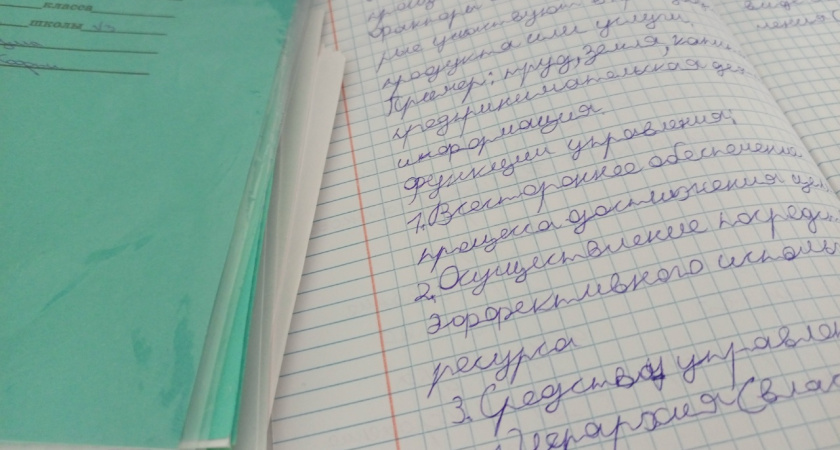 класса
школы
факторы
продукта или услуги.
Пример: труд, земля, капи
предпринимательская де
информация.
функции управления:
1. Всестороннее обеспечение
процесса достижения це
2. Осуществление посред
эффективного исполь
ресурса
3. Средства управлен
Иерархия (влас